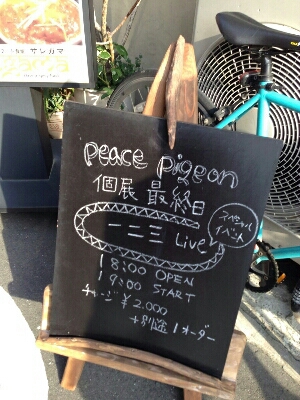 サレガマ
peace pigeon
個展 最終日
一二三 Live!
スペシャル
イベント
18:00 OPEN
19:00 START
チャージ ¥2,000
+別途1オーダー